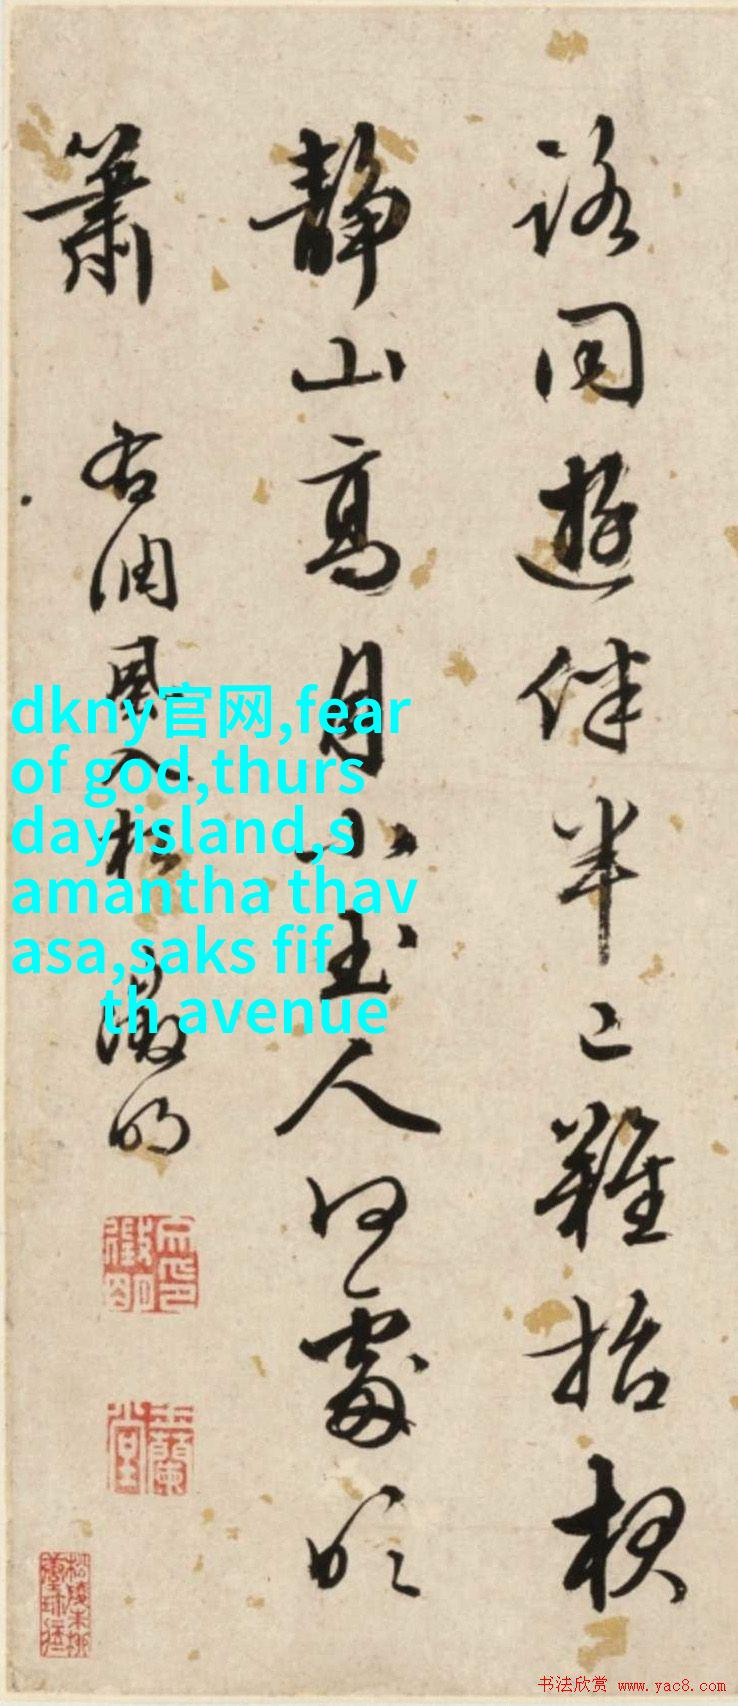 同遊伴半已難招夜
静山高月小玉人何處吹
簫
右調風入松 徵明
徵明
dkny官网,fear
of god,thurs
day island,s
amantha thav
asa,saks fif
th avenue
书法欣赏 www.yac8.com